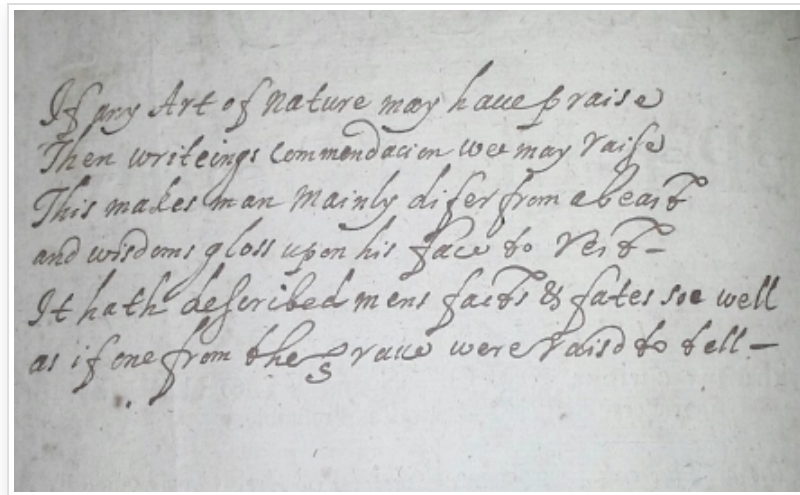 If any Art of Nature may haue praise
Then writeings Commendacion wee may raise
This makes man mainly difer from a beast
and wisdoms gloss upon his face to rest –
It hath described mens facts & fates soe well
as if one from the graue were raisd to tell –